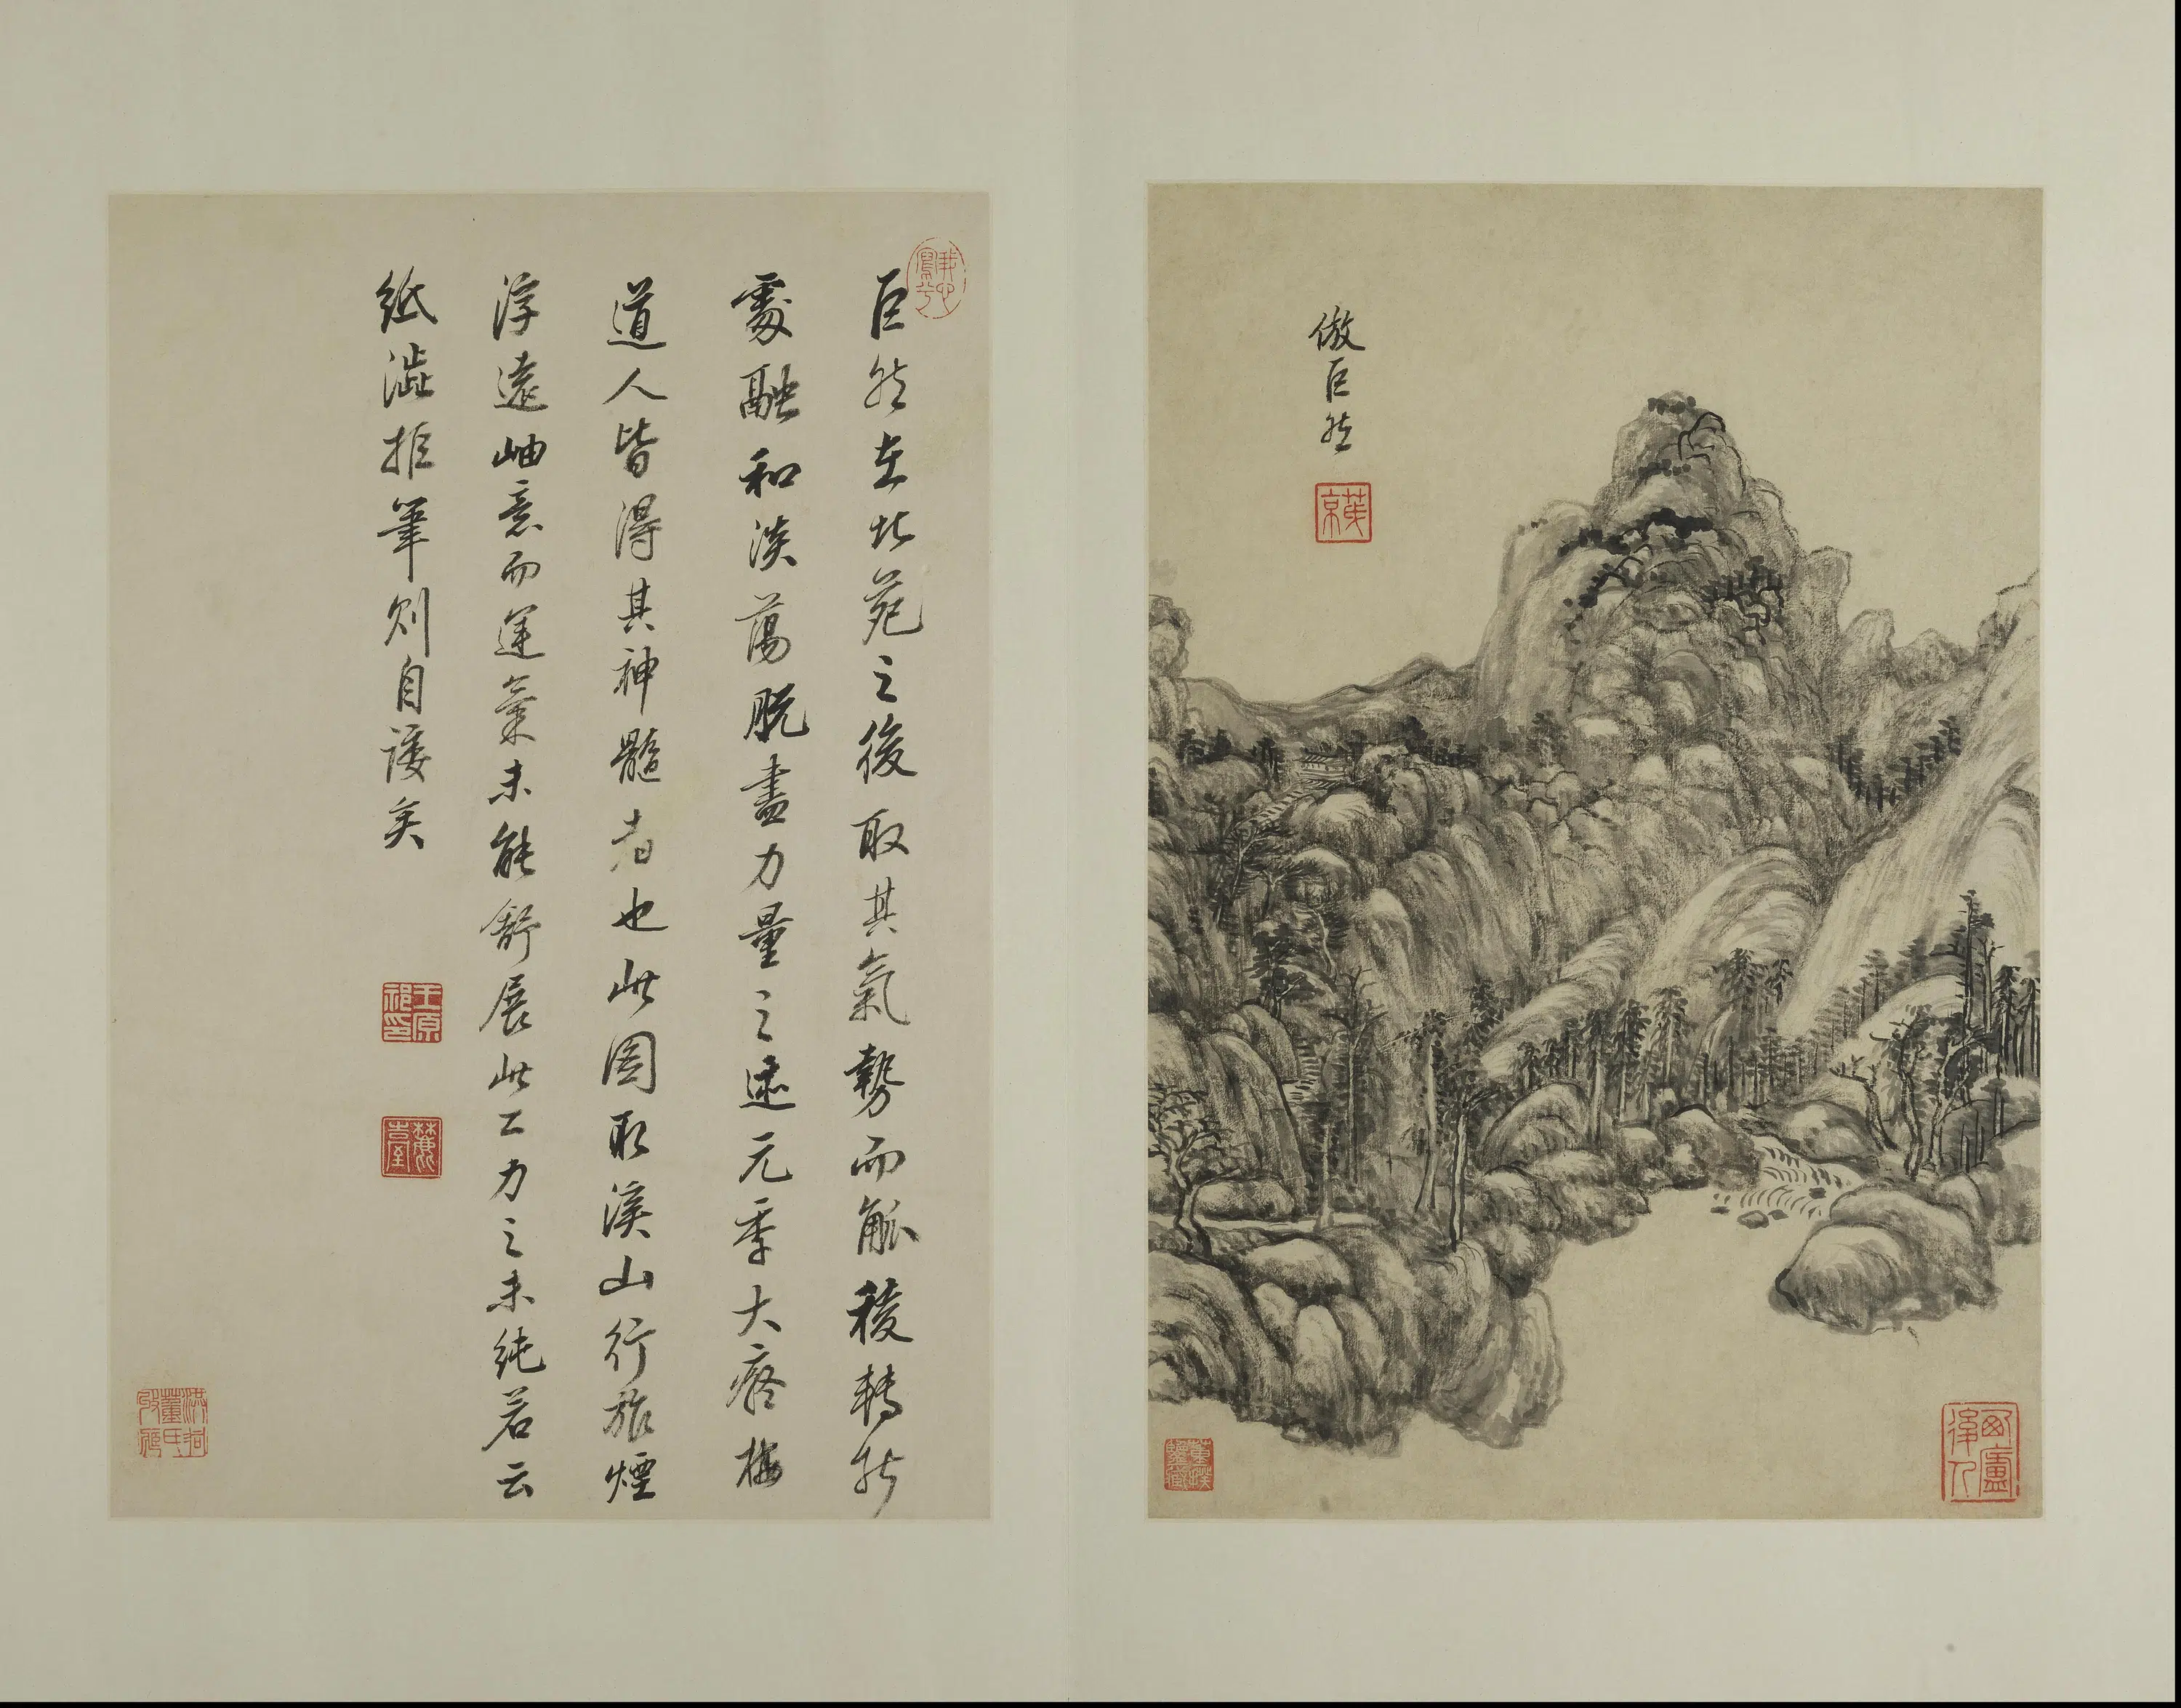 倣巨然
茂京
巨然在北苑之後取其氣勢而觚稜轉折
處融和淡蕩脫盡力量之迹元季大癡梅
道人皆得其神髓者也此圖取溪山行旅煙
浮遠岫意而運氣未能舒展此工力之未純若云
紙澁拒筆則自諉矣
王原祁印
麓臺